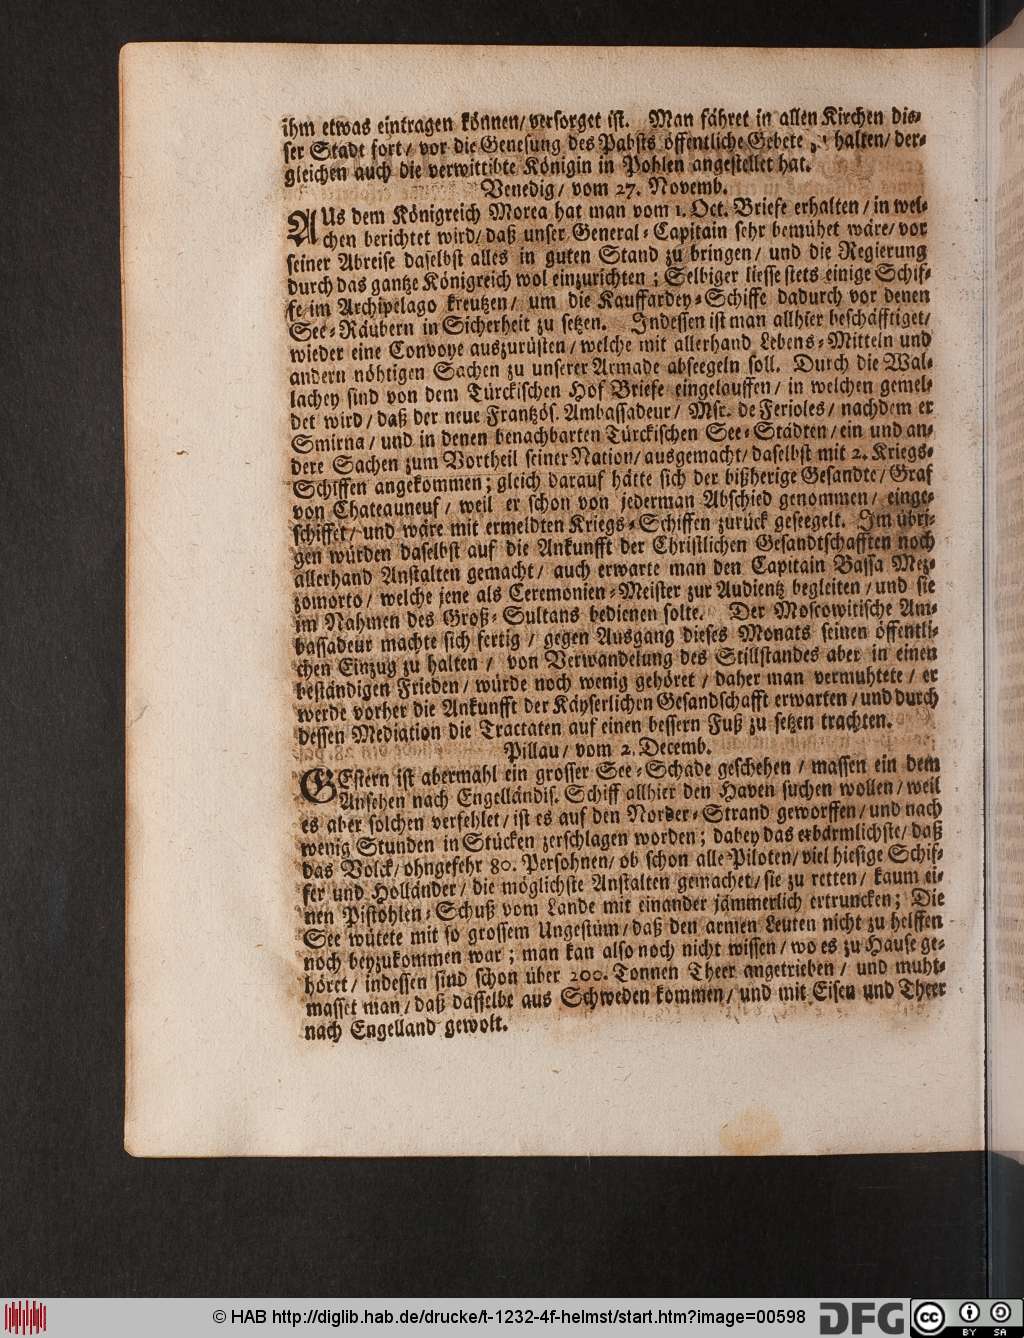 ihm etwas eintragen können/ versorget ist. Man fähret in allen Kirchen die-
ser Stadt fort/ vor die Genesung des Pabsts öffentliche Gebete halten/ der-
gleichen auch die verwittibte Königin in Pohlen angestellet hat.
Venedig/ vom 27. Novemb.
AUs dem Königreich Morea hat man vom 1. Oct. Briefe erhalten/ in wel-
chen berichtet wird/ daß unser General-Capitain sehr bemühet wäre/ vor
seiner Abreise daselbst alles in guten Stand zu bringen/ und die Regierung
durch das gantze Königreich wol einzurichten; Selbiger liesse stets einige Schif-
fe im Archipelago kreutzen/ um die Kauffardey-Schiffe dadurch vor denen
See-Räubern in Sicherheit zu setzen. Indessen ist man allhier beschäfftiget/
wieder eine Convoye auszurüsten/ welche mit allerhand Lebens-Mitteln und
andern nöhtigen Sachen zu unserer Armade abseegeln soll. Durch die Wal-
lachey sind von dem Türckischen Hof Briefe eingelauffen/ in welchen gemel-
det wird/ daß der neue Frantzös. Ambassadeur/ Msr. de Ferioles/ nachdem er
Smirna/ und in denen benachbarten Türckischen See-Städten/ ein und an-
dere Sachen zum Vortheil seiner Nation/ ausgemacht/ daselbst mit 2. Kriegs-
Schiffen angekommen; gleich darauf hätte sich der bißherige Gesandte/ Graf
von Chateauneuf/ weil er schon von jederman Abschied genommen/ einge-
schiffet/ und wäre mit ermeldten Kriegs-Schiffen zurück geseegelt. Im übri-
gen würden daselbst auf die Ankunfft der Christlichen Gesandtschafften noch
allerhand Anstalten gemacht/ auch erwarte man den Capitain Bassa Mez-
zomorto/ welche jene als Ceremonien-Meister zur Audientz begleiten/ und sie
im Nahmen des Groß-Sultans bedienen solte. Der Moscowitische Am-
bassadeur machte sich fertig/ gegen Ausgang dieses Monats seinen öffentli-
chen Einzug zu halten/ von Verwandelung des Stillstandes aber in einen
beständigen Frieden/ würde noch wenig gehöret/ daher man vermuhtete/ er
werde vorher die Ankunfft der Käyserlichen Gesandschafft erwarten/ und durch
dessen Mediation die Tractaten auf einen bessern Fuß zu setzen trachten.
Pillau/ vom 2. Decemb.
GEstern ist abermahl ein grosser See-Schade geschehen/ massen ein dem
Ansehen nach Engelländis. Schiff allhier den Haven suchen wollen/ weil
es aber solchen verfehlet/ ist es auf den Norder-Strand geworffen/ und nach
wenig Stunden in Stücken zerschlagen worden; dabey das erbärmlichste/ daß
das Volck/ ohngefehr 80. Persohnen/ ob schon alle Piloten/ viel hiesige Schif-
fer und Holländer/ die möglichste Anstalten gemachet/ sie zu retten/ kaum ei-
nen Pistohlen-Schuß vom Lande mit einander jämmerlich ertruncken; Die
See wütete mit so grossem Ungestüm/ daß den armen Leuten nicht zu helffen
noch beyzukommen war; man kan also noch nicht wissen/ wo es zu Hause ge-
höret/ indessen sind schon über 200. Tonnen Theer angetrieben/ und muht-
masset man/ daß dasselbe aus Schweden kommen/ und mit Eisen und Theer
nach Engelland gewolt.
© HAB http://diglib.hab.de/drucke/t-1232-4f-helmst/start.htm?image=00598
DFG
cc BY SA